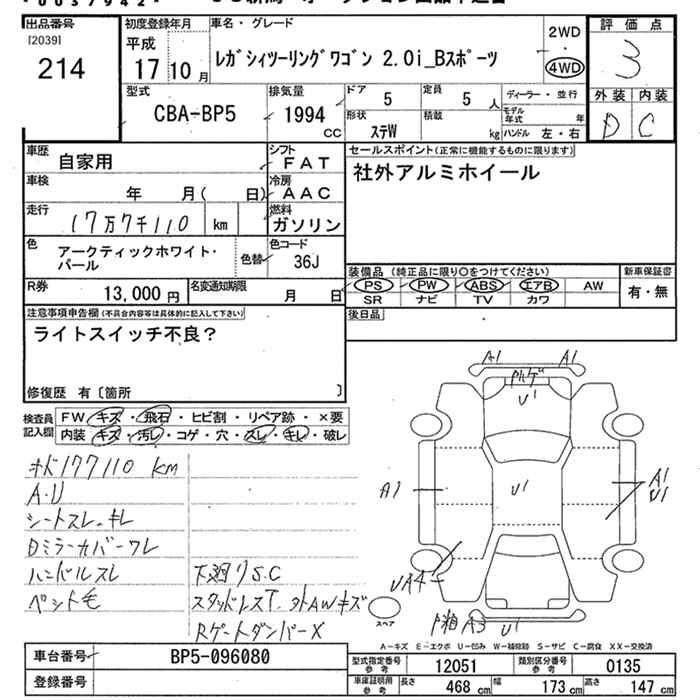 出品番号
[2039]
214
初度登録年月
平成
17 10 月
車名・グレード
ﾚｶﾞｼｨﾂｰﾘﾝｸﾞﾜｺﾞﾝ 2.0i_Bｽﾎﾟｰﾂ
2WD
・
4WD
評価点
3
外装 内装
D C
型式
CBA-BP5
排気量
1994
CC
ドア
5
定員
5 人
ディーラー・並行
形状
ｽﾃW
積載
kg
モデル年式
年
ハンドル 左・右
車歴
自家用
シフト
FAT
車検
年 月( 日)
冷房
AAC
走行
17万7千110 km
燃料
ガソリン
色
アークティックホワイト・
パール
色替
色コード
36J
R券
13,000 円
名変通知期限
月 日
セールスポイント(正常に機能するものに限ります)
社外アルミホイール
装備品 (純正品に限り○をつけてください)
PS PW ABS エアB AW
SR ナビ TV カワ
新車保証書
有・無
後日品
注意事項申告欄(不具合内容等は具体的に記入して下さい)
ライトスイッチ不良？
修復歴 有〔箇所 〕
検査員
記入欄
FW キズ・飛石・ヒビ割・リペア跡・×要
内装 キズ・汚レ・コゲ・穴・スレ・キレ・破レ
キド177110 km
A.U
シートスレ.キレ
Dミラーカバーワレ
ハンドルスレ
ペット毛
下廻りS.C
スタッドレスT. 外AWキズ
RゲートダンパーX
A1 A1
U1
A1
U1
A1
U1
UA4
A3 U1
スペア
A-キズ E-エクボ U-凹み W-補修跡 S-サビ C-腐食 XX-交換済
車台番号
BP5-096080
登録番号
型式指定番号
参考
12051
類別区分番号
参考
0135
車庫証明用
参考
長さ
468 cm
幅
173 cm
高さ
147 cm